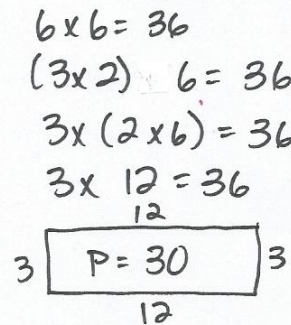 6 x 6 = 36
(3x2) 6 = 36
3x (2 x 6) = 36
3x 12 = 36
12
3 P = 30 3
12